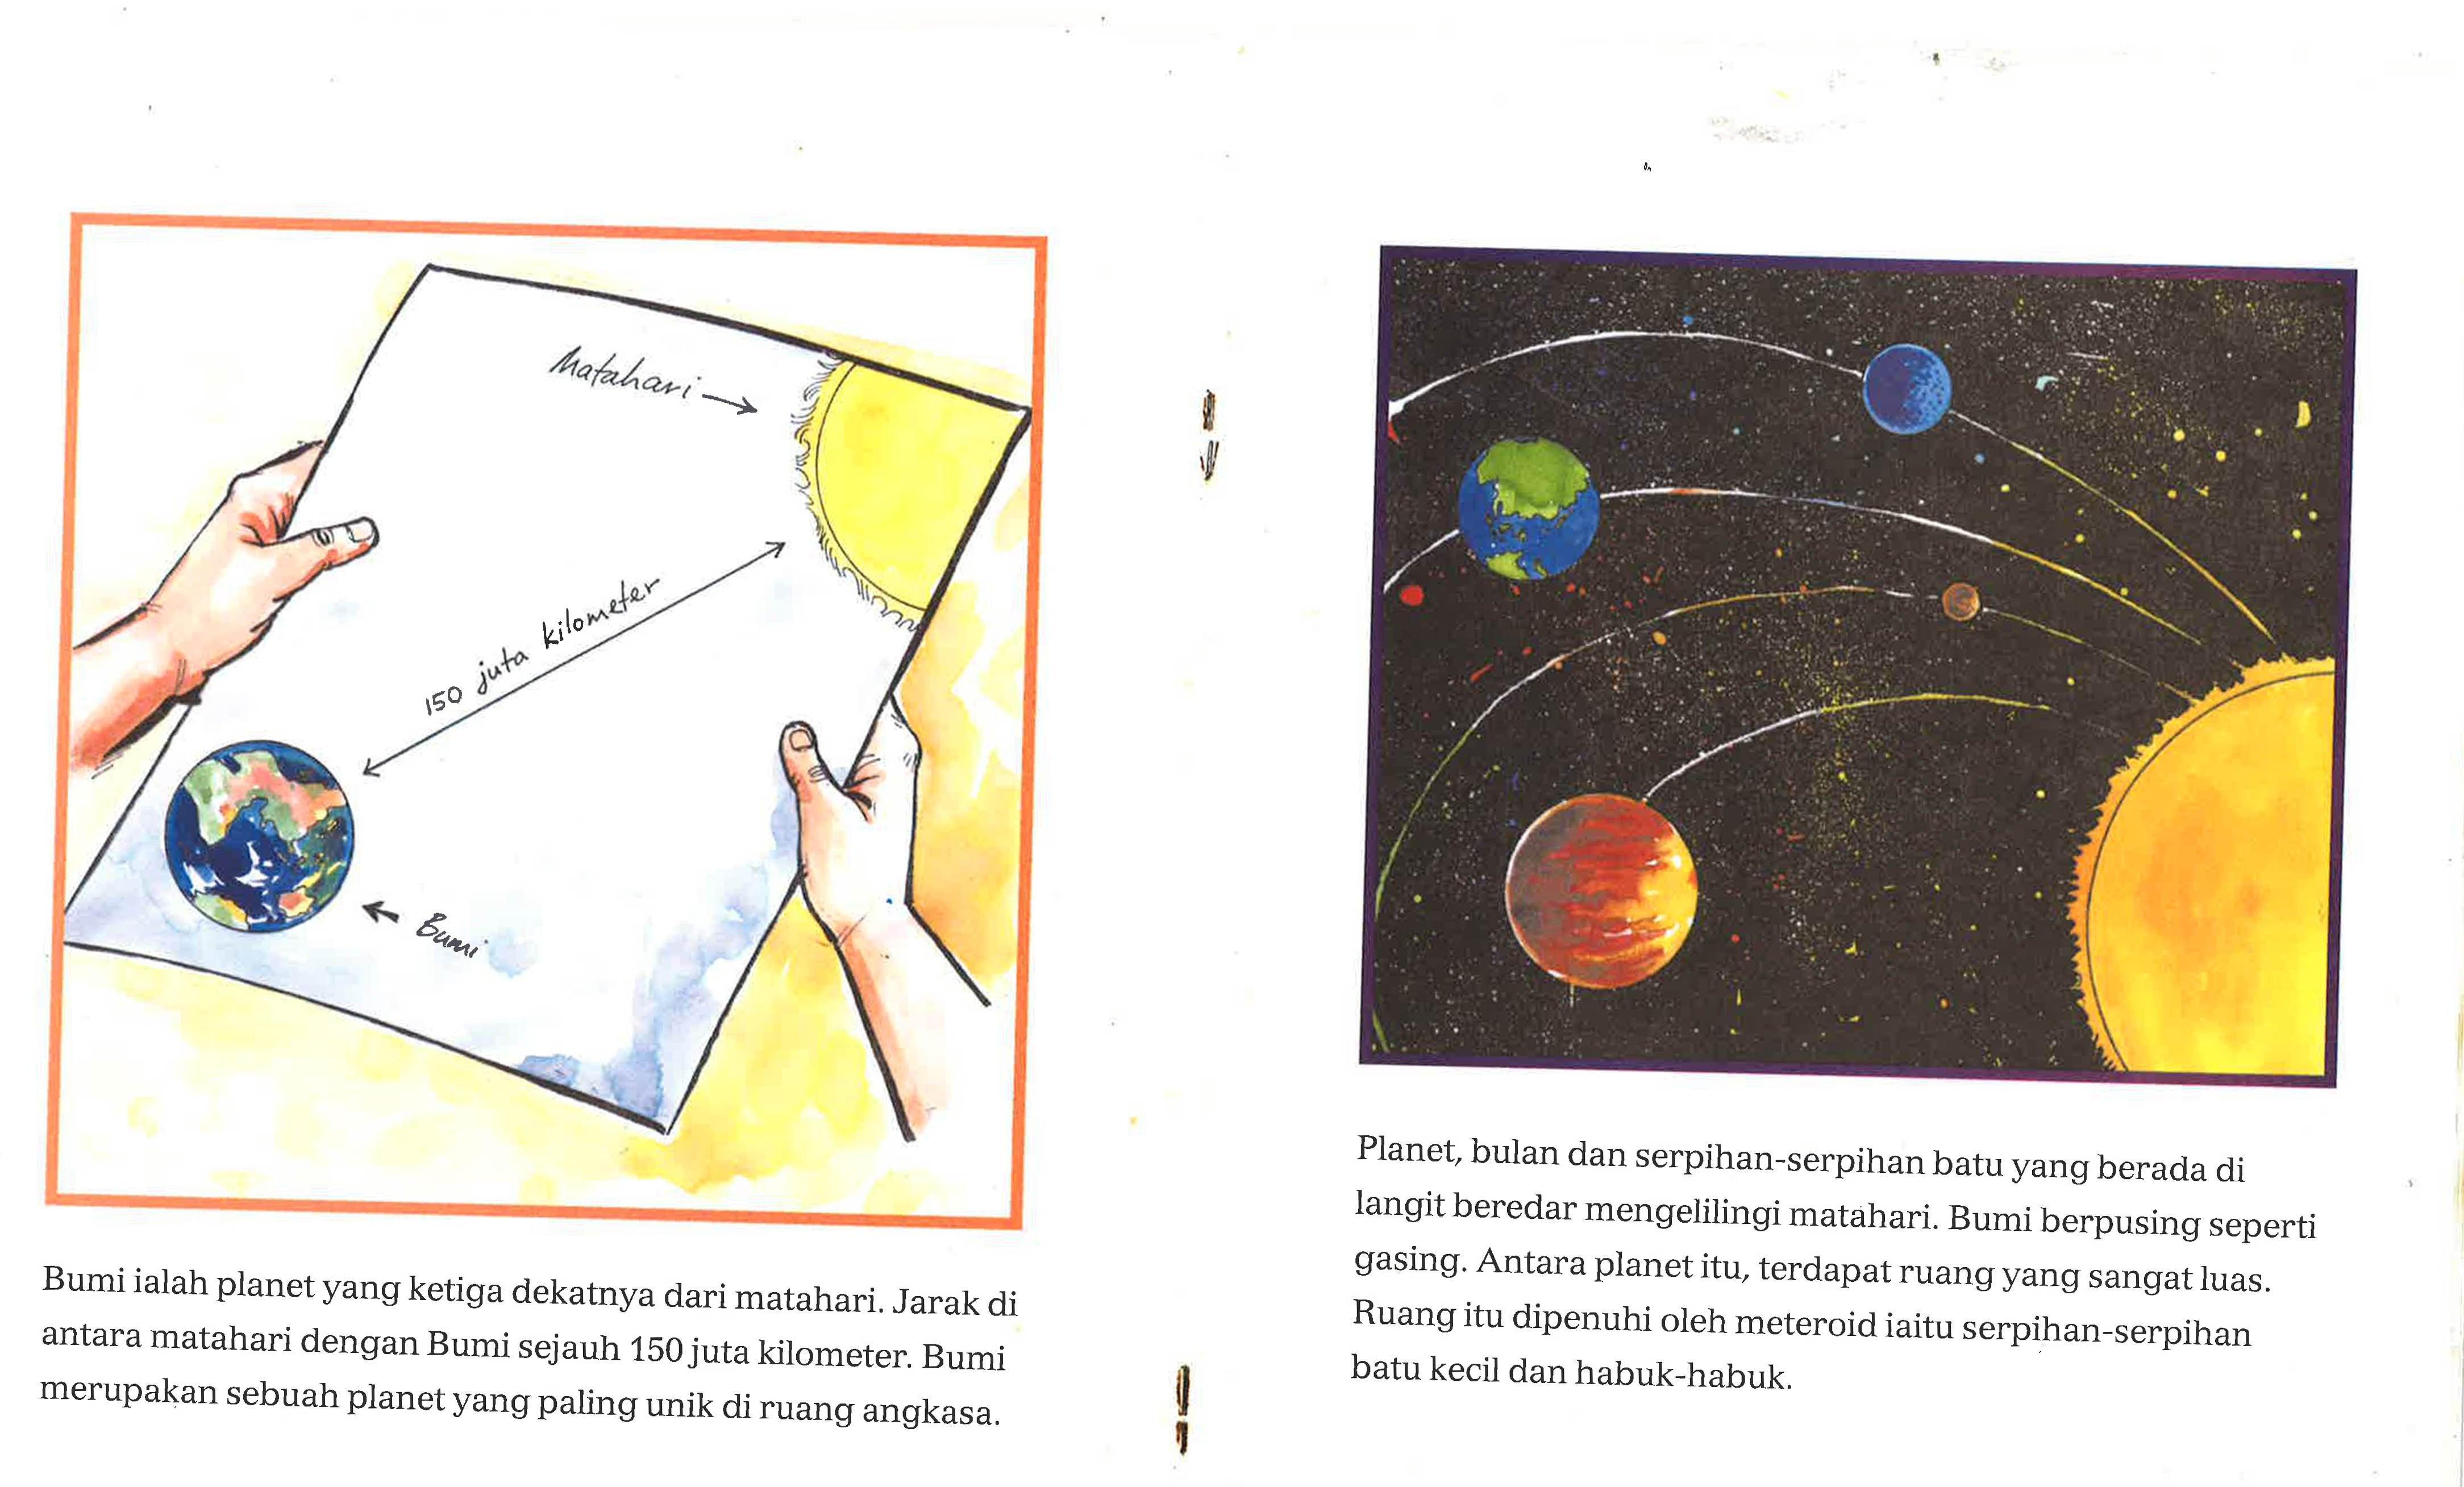 Matahari
150 juta kilometer
Bumi
Bumi ialah planet yang ketiga dekatnya dari matahari. Jarak di
antara matahari dengan Bumi sejauh 150 juta kilometer. Bumi
merupakan sebuah planet yang paling unik di ruang angkasa.
Planet, bulan dan serpihan-serpihan batu yang berada di
langit beredar mengelilingi matahari. Bumi berpusing seperti
gasing. Antara planet itu, terdapat ruang yang sangat luas.
Ruang itu dipenuhi oleh meteroid iaitu serpihan-serpihan
batu kecil dan habuk-habuk.